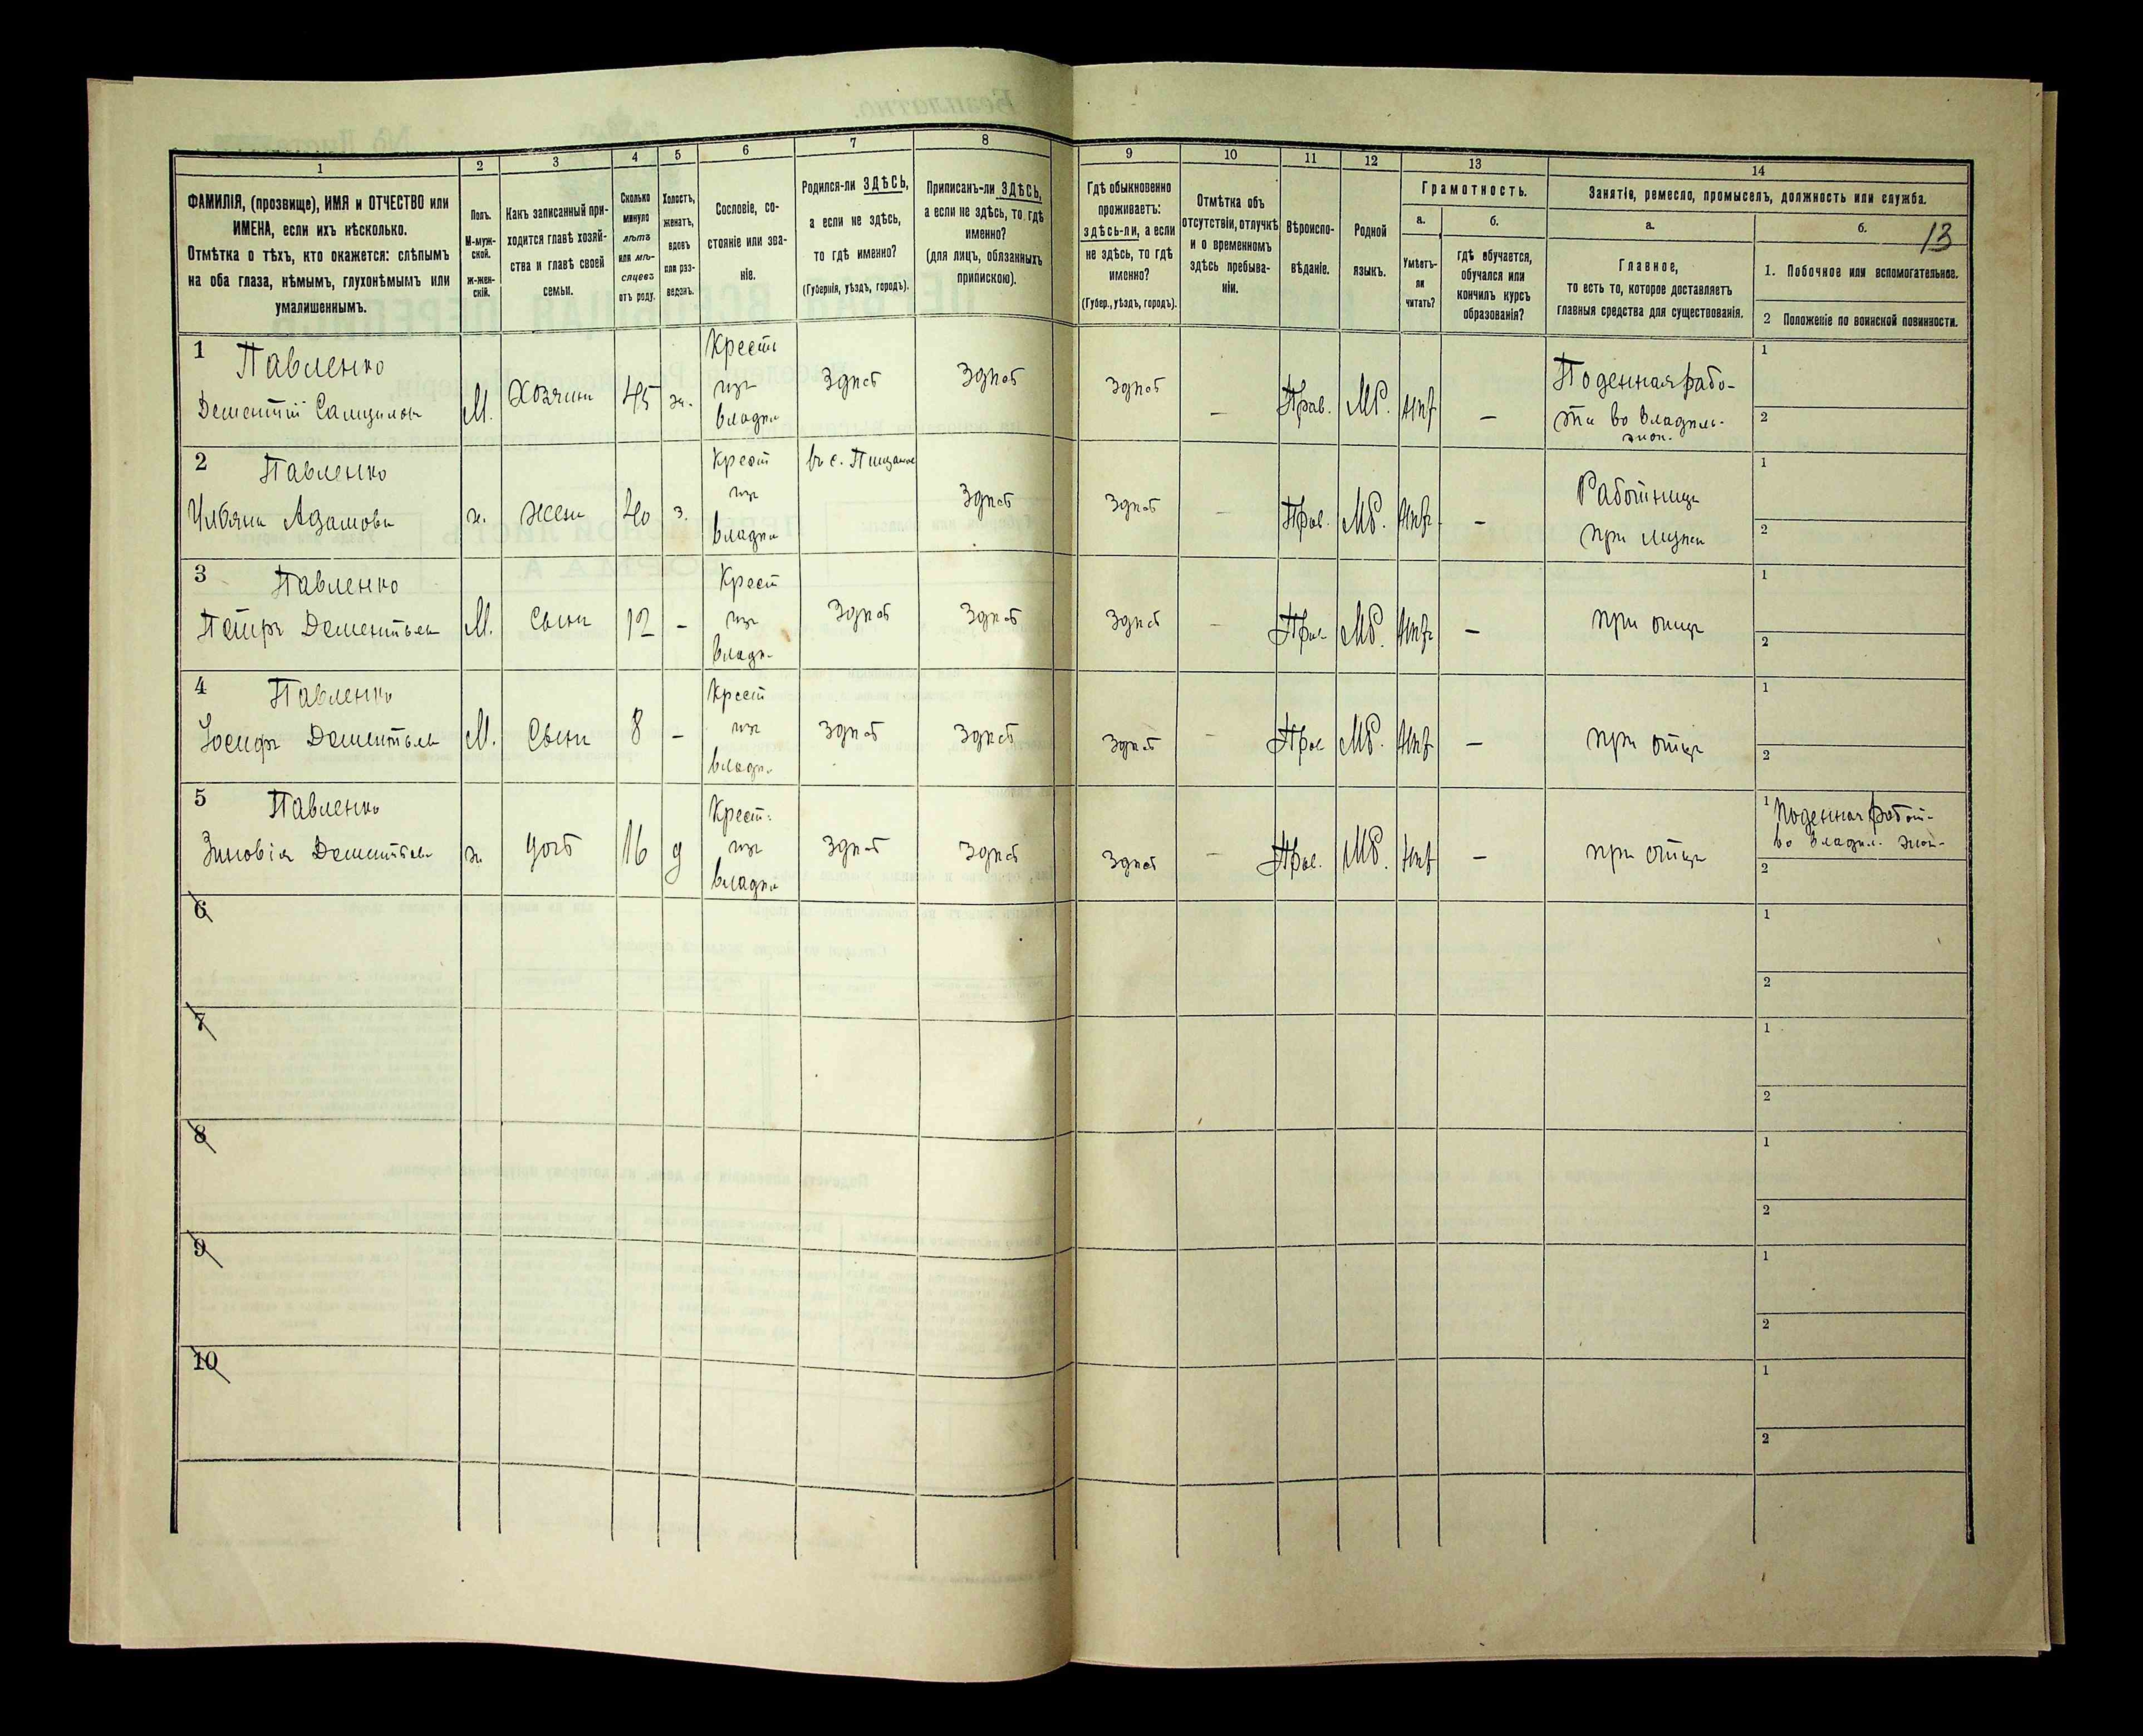 13
1
2
3
4
5
6
7
8
9
10
11
12
13
14
ФАМИЛІЯ, (прозвище), ИМЯ и ОТЧЕСТВО или
ИМЕНА, если ихъ нѣсколько.
Отмѣтка о тѣхъ, кто окажется: слѣпымъ
на оба глаза, нѣмымъ, глухонѣмымъ или
умалишеннымъ.
Полъ.
М-муж-
ской.
ж-жен-
скій.
Какъ записанный при-
ходится главѣ хозяй-
ства и главѣ своей
семьи.
Сколько
минуло
лѣтъ
или мѣ-
сяцевъ
отъ роду.
Холостъ,
женатъ,
вдовъ
или раз-
веденъ.
Сословіе, со-
стояніе или зва-
ніе.
Родился-ли ЗДѢСЬ,
а если не здѣсь,
то гдѣ именно?
(Губернія, уѣздъ, городъ).
Приписанъ-ли ЗДѢСЬ,
а если не здѣсь, то гдѣ
именно?
(для лицъ, обязанныхъ
припискою).
Гдѣ обыкновенно
проживаетъ:
здѣсь-ли, а если
не здѣсь, то гдѣ
именно?
(Губер., уѣздъ, городъ).
Отмѣтка объ
отсутствіи, отлучкѣ
и о временномъ
здѣсь пребыва-
ніи.
Вѣроиспо-
вѣданіе.
Родной
языкъ.
Грамотность.
а.
Умѣетъ-
ли
читать?
б.
гдѣ обучается,
обучался или
кончилъ курсъ
образованія?
Занятіе, ремесло, промыселъ, должность или служба.
а.
Главное,
то есть то, которое доставляетъ
главныя средства для существованія.
б.
1. Побочное или вспомогательное.
2 Положеніе по воинской повинности.
1 Павленко
Дементій
М.
Хозяинъ
45
ж.
Крест
изъ
владѣ
Здѣсь
Здѣсь
Здѣсь
–
Прав.
МР.
нѣт
–
Поденная рабо-
та во владѣль-
экон.
1
2
2 Павленко
Ульяна Адамова
ж.
жена
40
з.
Крест
изъ
владѣ
въ с. Пищаное
Здѣсь
Здѣсь
–
Прав.
МР.
нѣт
–
Работница
при мужѣ
1
2
3 Павленко
Петръ Дементьевъ
М.
Сынъ
12
–
Крест
изъ
владѣ-
Здѣсь
Здѣсь
Здѣсь
–
Прав
МР.
нѣт
–
при отцѣ
1
2
4 Павленко
Іосифъ Дементьевъ
М.
Сынъ
8
–
Крест
изъ
владѣ.
Здѣсь
Здѣсь
Здѣсь
–
Прав
МР.
нѣт
–
при отцѣ
1
2
5 Павленко
Зиновія Дементьева
ж.
дочь
16
д
Крест.
изъ
владѣ
Здѣсь
Здѣсь
Здѣсь
–
Прав.
МР.
нѣт
–
при отцѣ
1 Поденная работ-
во владѣл. экон-
2
6
1
2
7
1
2
8
1
2
9
1
2
10
1
2